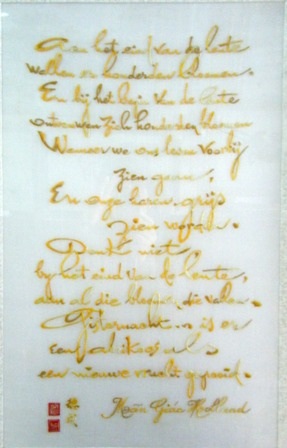 Aan het eind van de lente
vallen er honderden bloemen.
En bij het begin van de lente
honderden bloemen
Wanneer we ons leven voorbij
zien gaan,
En onze haren grijs
zien worden.
Denkt niet,
bij het eind van de lente,
aan al die bloemen, die vielen.
Gisternacht is er
een abrikoos
een nieuwe vrucht gegroeid.
Mãn Giác Holland